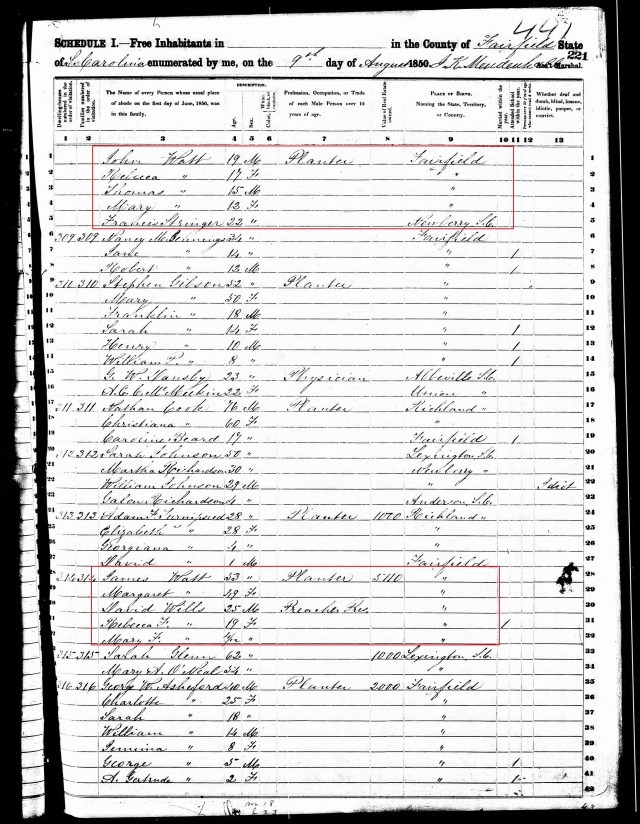 491
SCHEDULE I.—Free Inhabitants in in the County of Fairfield State
221
of S. Carolina enumerated by me, on the 9th day of August 1850. J K Mendenhall Ass't Marshal.
Dwelling-houses numbered in the order of visitation. Families numbered in the order of visitation. The Name of every Person whose usual place of abode on the first day of June, 1850, was in this family. DESCRIPTION. Age. Sex. Profession, Occupation, or Trade of each Male Person over 15 years of age. Value of Real Estate owned. PLACE OF BIRTH. Naming the State, Territory, or Country. Married within the year. Attended School within the year. Whether deaf and dumb, blind, insane, idiotic, pauper, or convict.
1 2 3 4 5 6 7 8 9 10 11 12 13
1 John Watt 19 M Planter Fairfield 1
2 Rebecca " 17 F " " 2
3 Thomas " 15 M " 3
4 Mary " 12 F " 4
5 Francis Stringer 22 " Newberry S.C. 5
6 309 309 Nancy 34 " Fairfield 6
7 Jane " 14 " " 1 7
8 Robert " 12 M " 1 8
9 311 310 Stephen Gibson 52 " Planter " 9
10 Mary " 50 F " 10
11 Franklin " 18 M " 11
12 Sarah " 14 F " 1 12
13 Henry " 10 M " 1 13
14 William F. " 8 " " 1 14
15 G. W. 23 " Physician Abbeville S.C. 15
16 22 F Union " 16
17 311 311 Nathan Cook 76 M Planter Richland " 17
18 Christiana " 60 F " 18
19 Caroline Beard 17 " Fairfield 1 19
20 312 312 Sarah Johnson 50 " Lexington S.C. 20
21 Martha Richardson 30 " Newberry " 21
22 William Johnson 29 M " Idiot 22
23 Galon Richardson 4 " Anderson S.C. 23
24 313 313 Adam F. Turnipseed 28 " Planter 1000 Richland " 24
25 Elizabeth " 28 F " 25
26 Georgiana " 4 " " 26
27 David " 1 M Fairfield 27
28 314 314 James Watt 53 " Planter 5110 " 28
29 Margaret " 49 F " 29
30 David Wills 25 M Preacher Pres. " 30
31 Rebecca F. " 19 F " 1 31
32 Mary F. " " " 32
33 315 315 Sarah Glenn 62 " 1000 Lexington S.C. 33
34 Mary A. O'Neal 34 " " 34
35 316 316 Georg W. Ashford 40 M Planter 2000 Fairfield 35
36 Charlotte " 25 F " 36
37 Sarah " 18 " " 37
38 William " 14 M " 38
39 Jemima " 8 F " 39
40 George " 5 M " 1 40
41 A. Gertrude " 2 F " 1 41
42